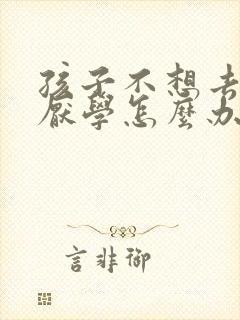 孩子不想去
厭學怎麼办
言非御